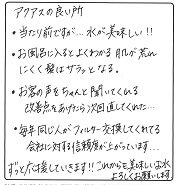 アクアスの良い所
・当たり前ですが…水が美味しい!!
・お風呂に入るとよくわかる 肌が荒れ
にくく髪はサラッとなる。
・お客の声をちゃんと聞いてくれる
改善点をあげたら次回直してくれた…
・毎年同じ人がフィルター交換してくれてる
会社に対する信頼度が上がっています…
ずっと応援していきます!! これからも美味しいお水
よろしくお願いします